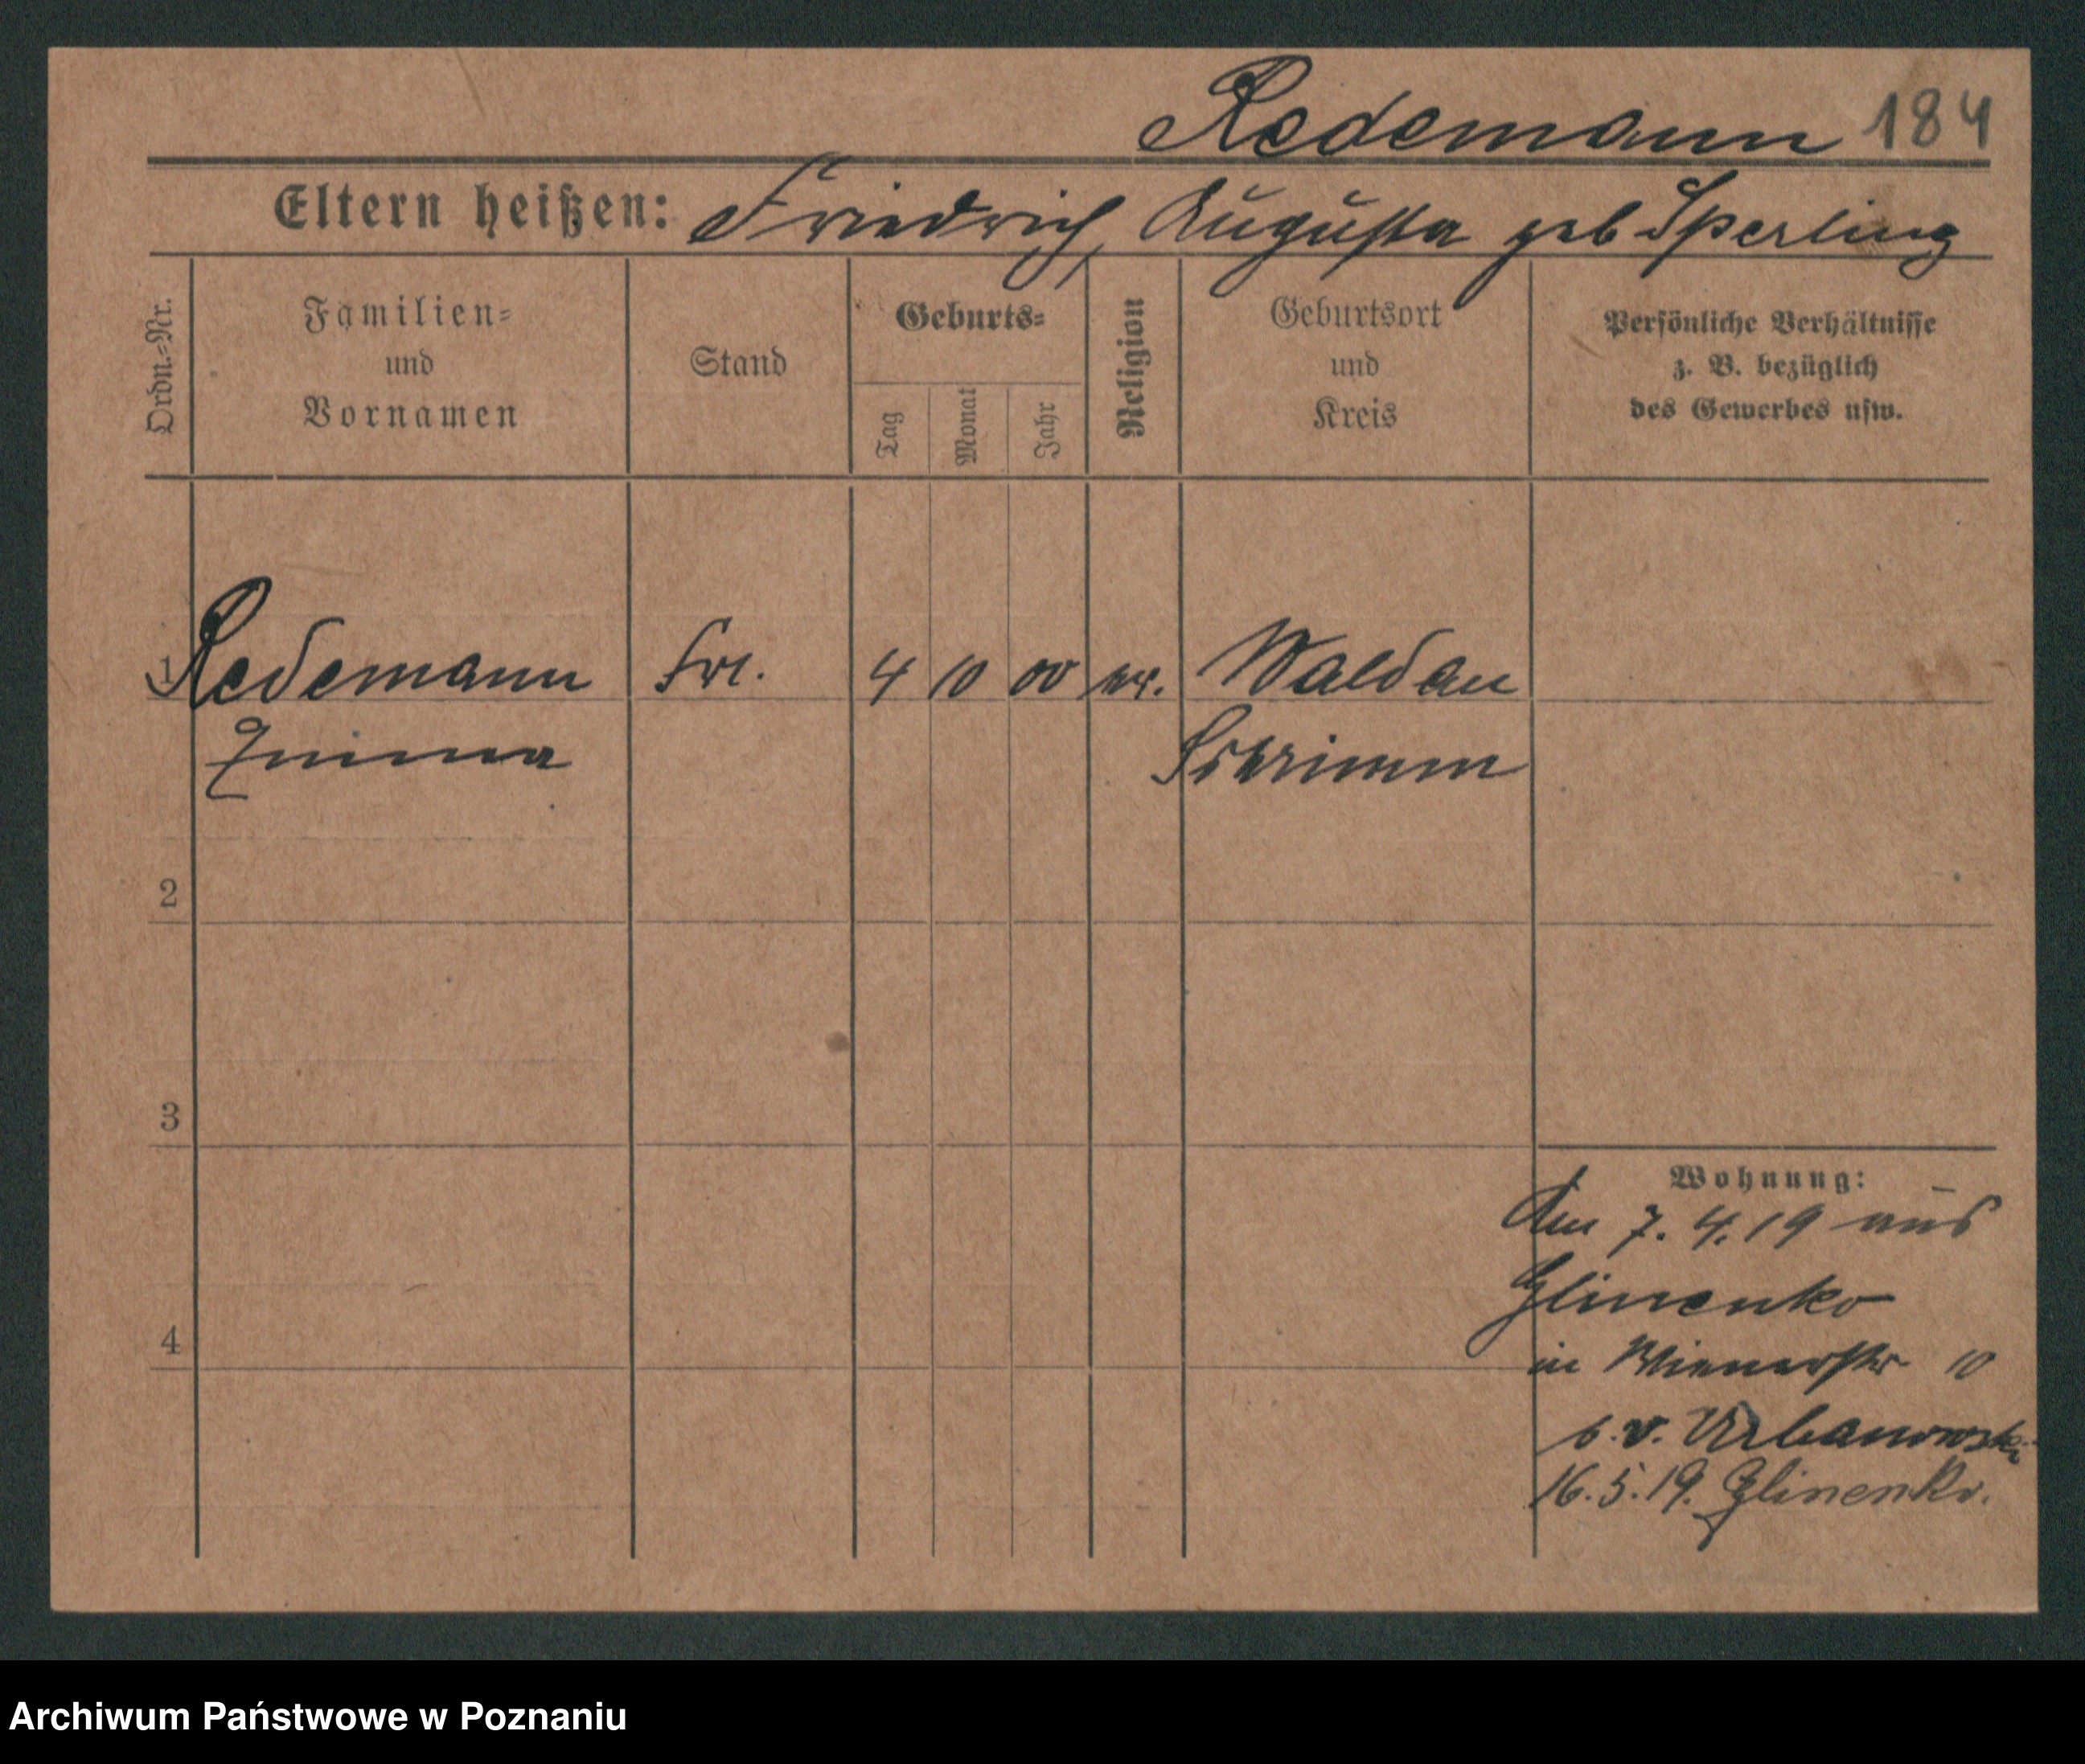 Redemann 184
Eltern heißen: Friedrich, Augusta geb Sperling
Ordn.=Nr.
Familien=
und
Vornamen
Stand
Geburts=
Tag
Monat
Jahr
Religion
Geburtsort
und
Kreis
Persönliche Verhältnisse
z. B. bezüglich
des Gewerbes usw.
1 Redemann Frl. 4 10 00 ev. Waldau
Emma Schrimm
2
3
4
Wohnung:
Am 7. 4. 19 aus
Glinenko
in Wienerstr 10
b. v. Urbanowski
16. 5. 19. Glinenko.
Archiwum Państwowe w Poznaniu